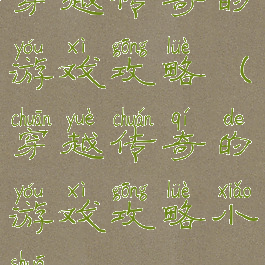 穿越传奇的
yóu xì gōng lüè
游戏攻略（
chuān yuè chuán qí de
穿越传奇的
yóu xì gōng lüè xiǎo
游戏攻略小
shuō